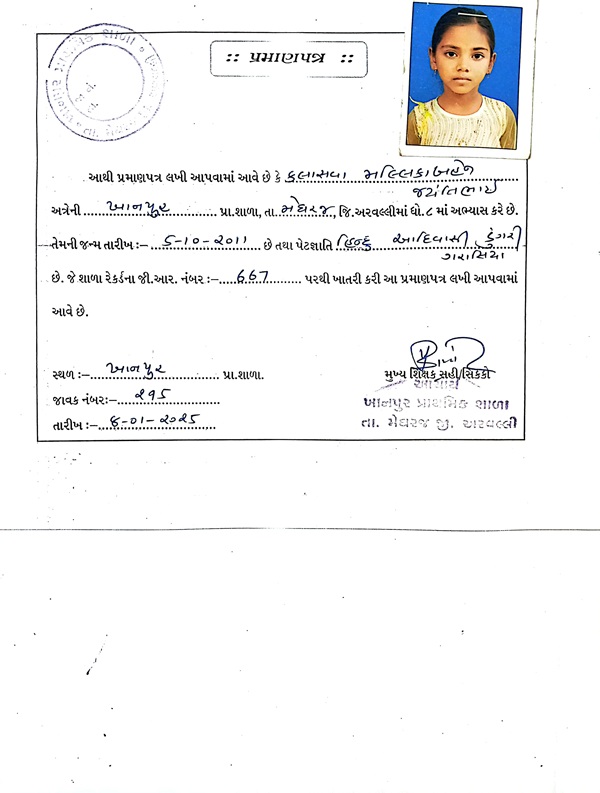 :: પ્રમાણપત્ર ::
આથી પ્રમાણપત્ર લખી આપવામાં આવે છે કે કલાસવા મલ્લિકાબહેન
જયંતિભાઈ
અત્રેની ખાનપુર પ્રા.શાળા, તા. મેઘરજ, જિ.અરવલ્લીમાં ધો.૮ માં અભ્યાસ કરે છે.
તેમની જન્મ તારીખ :– ૬-૧૦-૨૦૧૧ છે તથા પેટાજ્ઞાતિ હિન્દુ આદિવાસી ડુંગરી
ગરાસિયા
છે. જે શાળા રેકર્ડના જી.આર. નંબર :– ૬૬૭ પરથી ખાતરી કરી આ પ્રમાણપત્ર લખી આપવામાં
આવે છે.
સ્થળ :– ખાનપુર પ્રા.શાળા.
મુખ્ય શિક્ષક સહી/સિક્કો
જાવક નંબર:– ૨૧૫
આચાર્ય
ખાનપુર પ્રાથમિક શાળા
તારીખ :– ૪-૦૧-૨૦૨૫
તા. મેઘરજ જી. અરવલ્લી